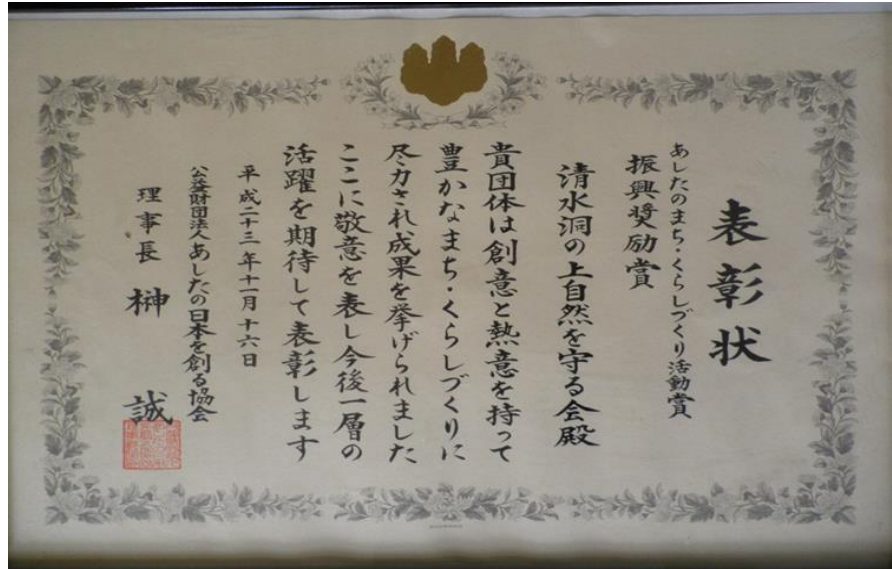 表彰状
あしたのまち・くらしづくり活動賞
振興奨励賞
清水洞の上自然を守る会殿
貴団体は創意と熱意を持って
豊かなまち・くらしづくりに
尽力され成果を挙げられました
ここに敬意を表し今後一層の
活躍を期待して表彰します
平成二十三年十一月十六日
公益財団法人あしたの日本を創る協会
理事長 榊 誠